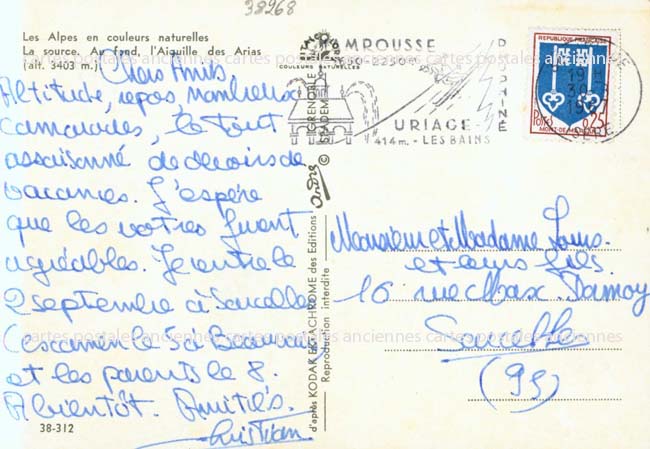 38968
Les Alpes en couleurs naturelles
La source. Au fond, l'Aiguille des Arias
(alt. 3403 m.)
Chers Amis,
Altitude, repos, nombreux
camarades, le tout
assaisonné de devoirs de
vacances. J'espère
que les vôtres furent
agréables. Je rentre le
2 septembre à Sarcelles
(examen le 5 à Beauvais)
et les parents le 8.
A bientôt. Amitiés.
Christian
38-312
d'après KODAK EKTACHROME des Editions André
Reproduction interdite
COULEURS NATURELLES
GRENOBLE
MPROUSSE
DAUPHINE
URIAGE
414m. - LES BAINS
19 H
30
REPUBLIQUE FRANÇAISE
Postes 0,25
MONT-DE-MARSAN
Monsieur et Madame Louis
et leurs fils
16 rue Max Dormoy
Sarcelles
(95)
cartes postales anciennes cartes postales anciennes cartes postales anciennes